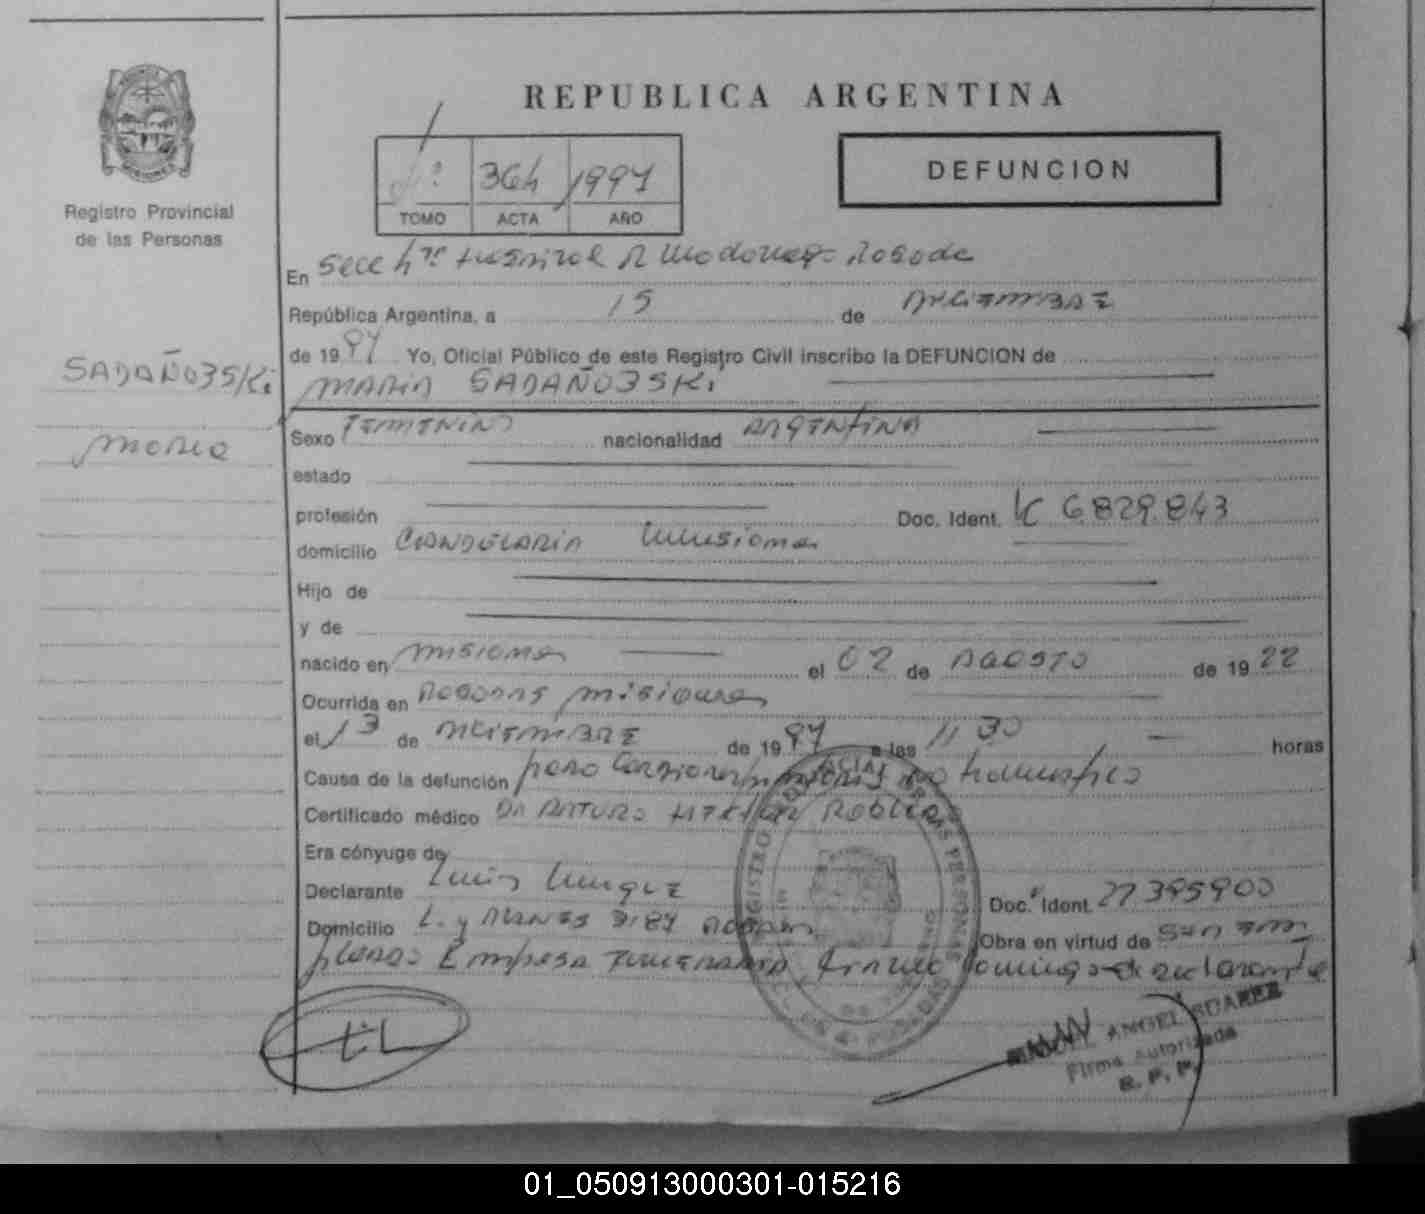 REPUBLICA ARGENTINA
DEFUNCION
364 1997
TOMO ACTA AÑO
Registro Provincial
de las Personas
En Secc Hospital R Madariaga Posadas
República Argentina, a 15 de DICIEMBRE
de 1997 Yo, Oficial Público de este Registro Civil inscribo la DEFUNCION de
SADAÑO3SKi
MARIA SADAÑO3SKi
MARIA
Sexo FEMENINO nacionalidad ARGENTINA
estado
profesión Doc. Ident. LC 6.829.843
domicilio CANDELARIA Misiones
Hijo de
y de
nacido en MISIONES el 02 de AGOSTO de 1922
Ocurrida en POSADAS MISIONES
el 13 de DICIEMBRE de 1997 a las 11 30 horas
Causa de la defunción paro Cardiorespiratorio no traumatico
Certificado médico DR ARTURO ROBLEDO
Era cónyuge de
Declarante Luis
Doc. Ident. 27395900
Domicilio L. y PLANES 3187
Obra en virtud de
Empresa FUNERARIA declarante
ANGEL SUAREZ
Firma Autorizada
R. P. P.
01_050913000301-015216